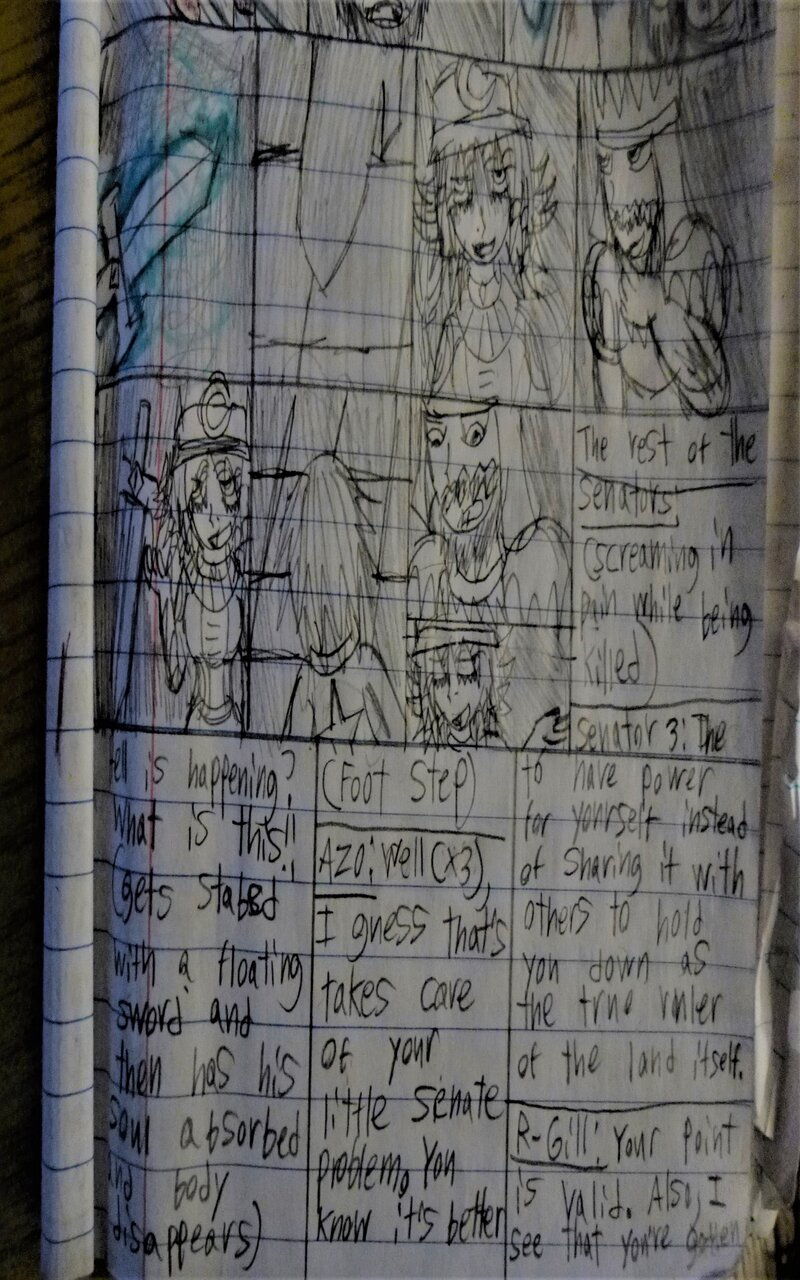 The rest of the
Senators:
(screaming in
pain while being
killed)
Senator 3: The
ell is happening?
What is this!!
(gets stabed
with a floating
sword and
then has his
soul absorbed
and body
disappears)
(Foot Step)
Azo: Well (x3),
I guess that's
takes care
of your
little senate
problem. You
know it's better
to have power
for yourself instead
of sharing it with
others to hold
you down as
the true ruler
of the land itself.
R-Gill: Your point
is valid. Also, I
see that you're gotten